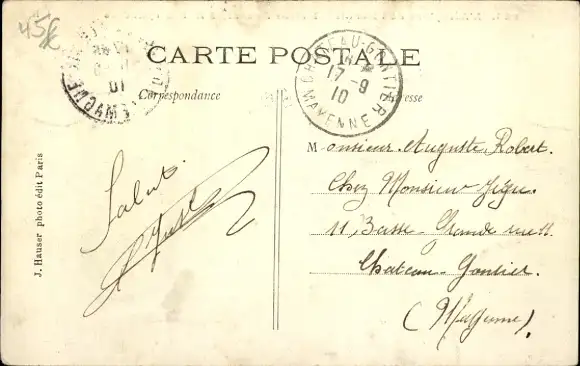 45f
CARTE POSTALE
Correspondance
Adresse
CHATEAU-GONTIER
17-9
10
MAYENNE
J. Hauser photo édit Paris
Salut.
Monsieur Auguste Robert.
Chez Monsieur
11, Basse - Grande rue 11.
Chateau - Gontier.
(Mayenne).